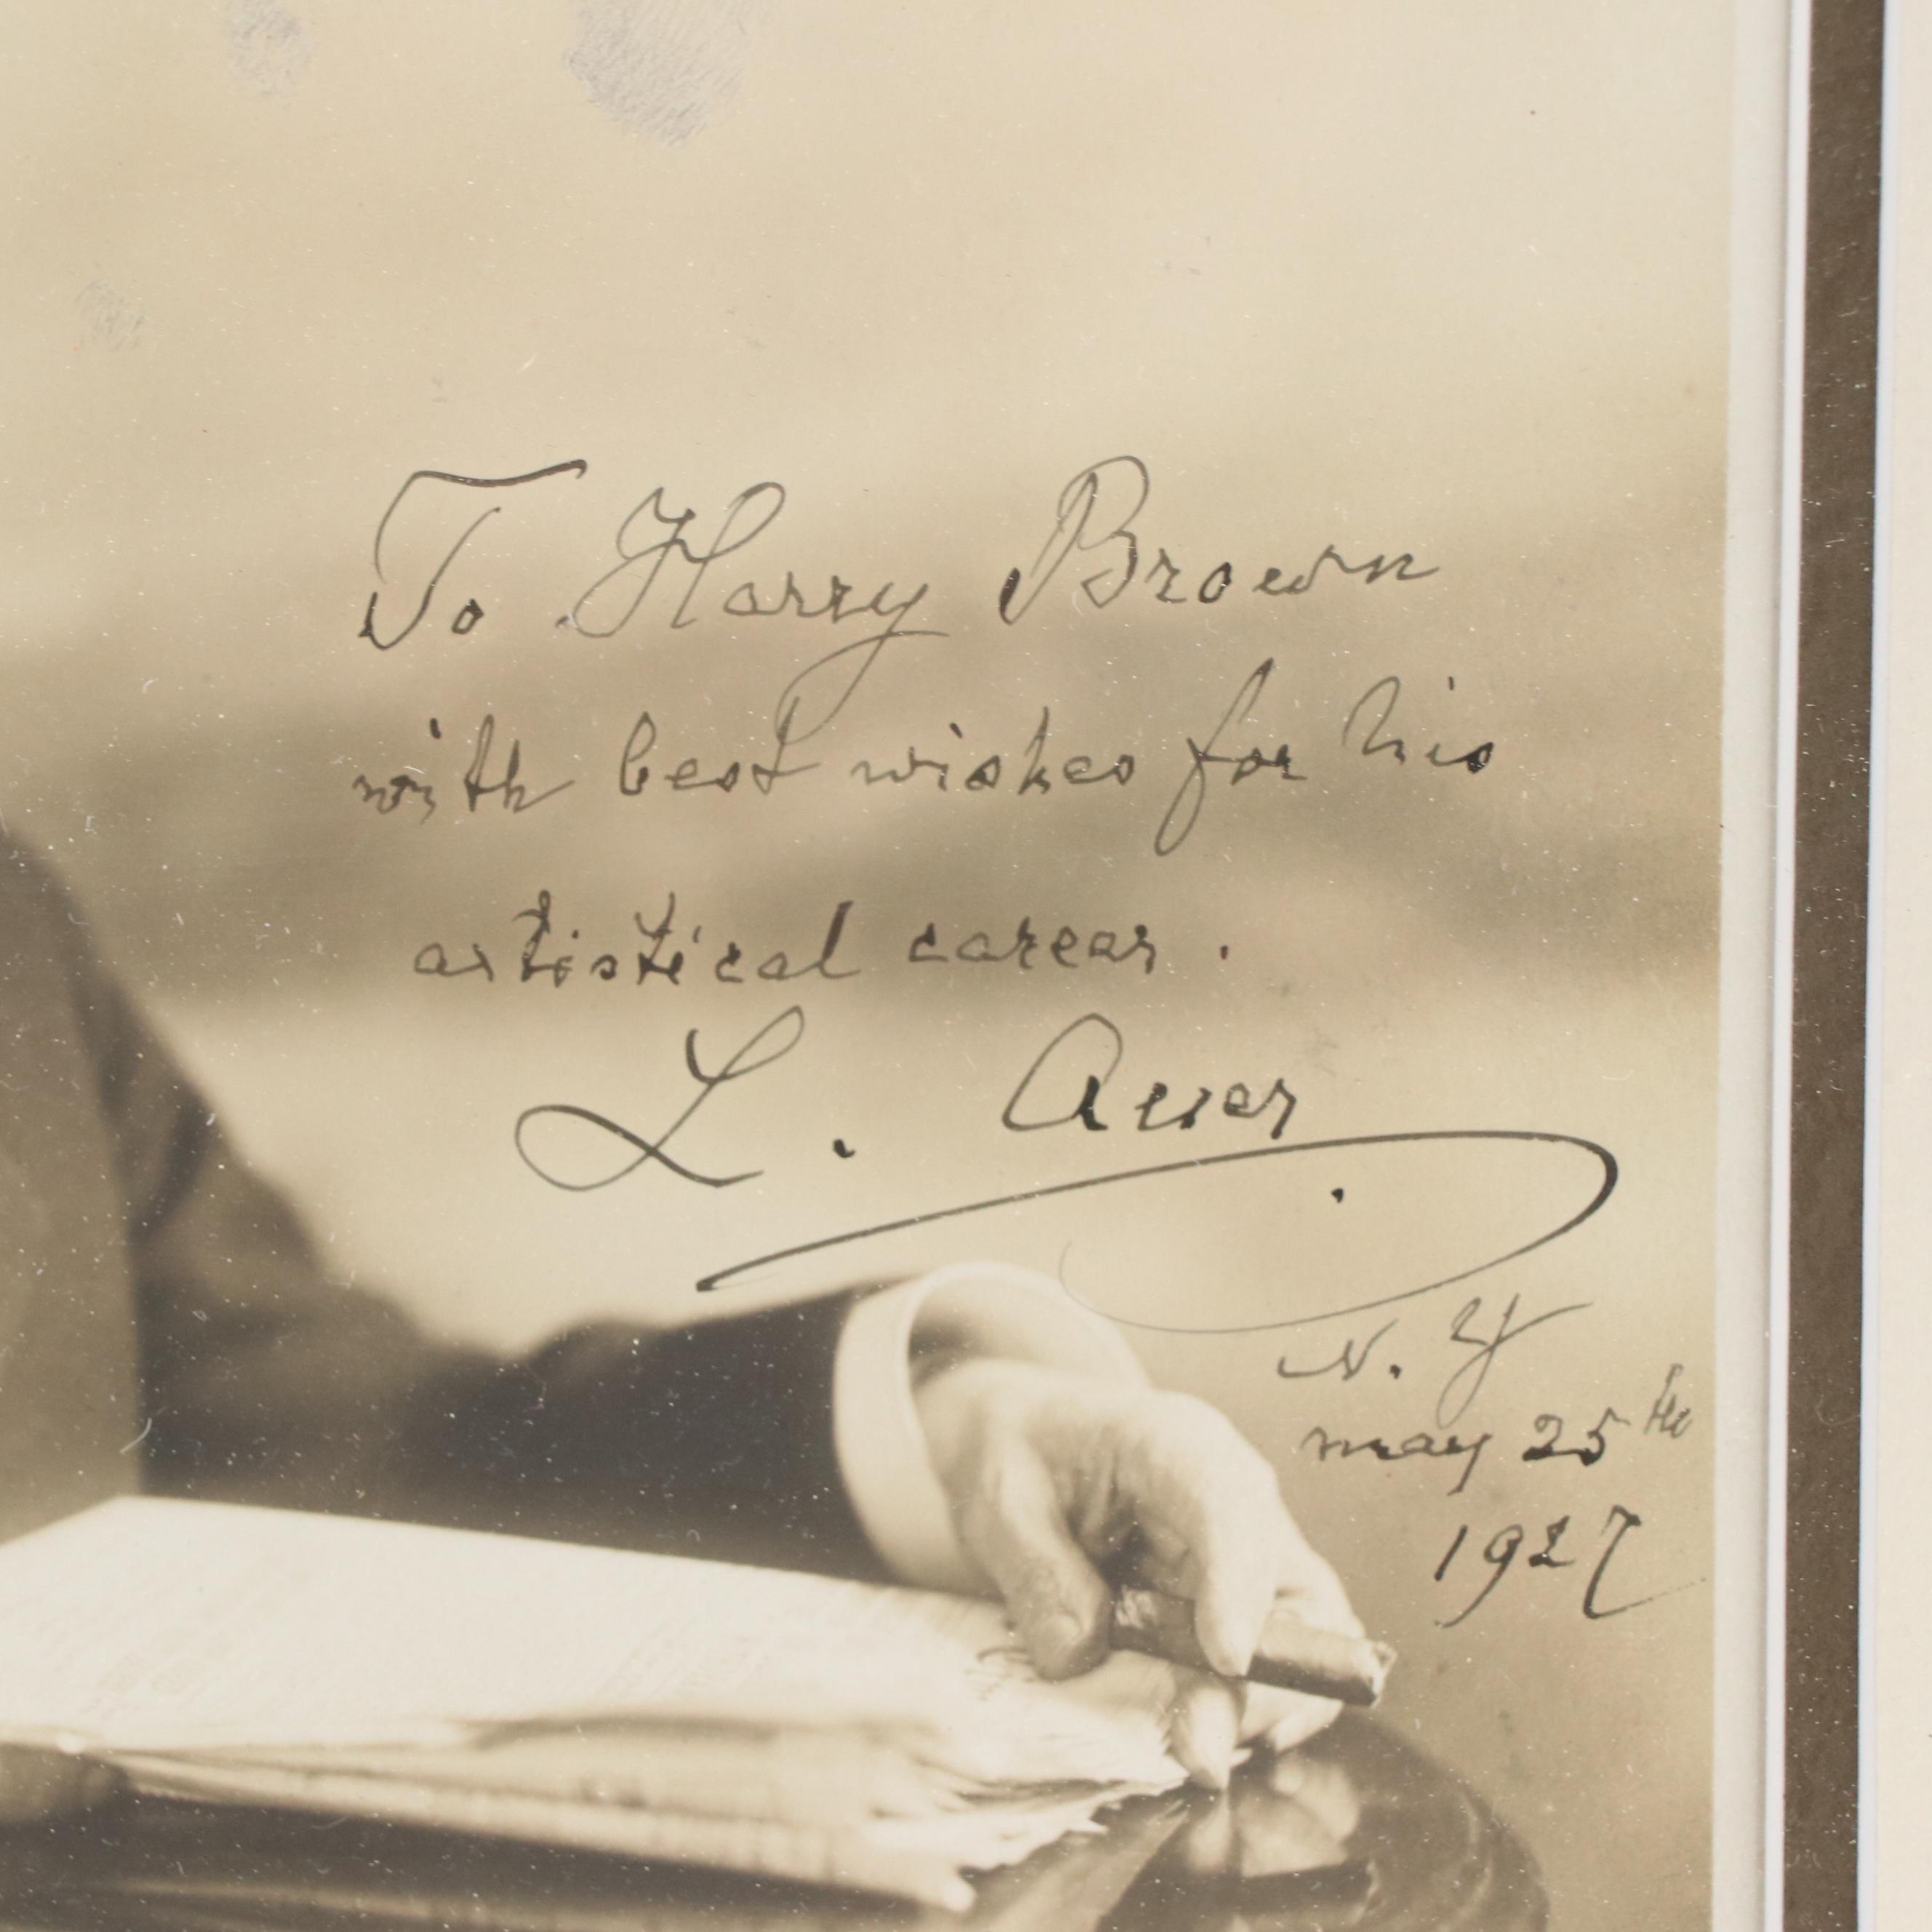 To Harry Brown
with best wishes for his
artistical carear.
L. Auer
N. Y
may 25th
1927